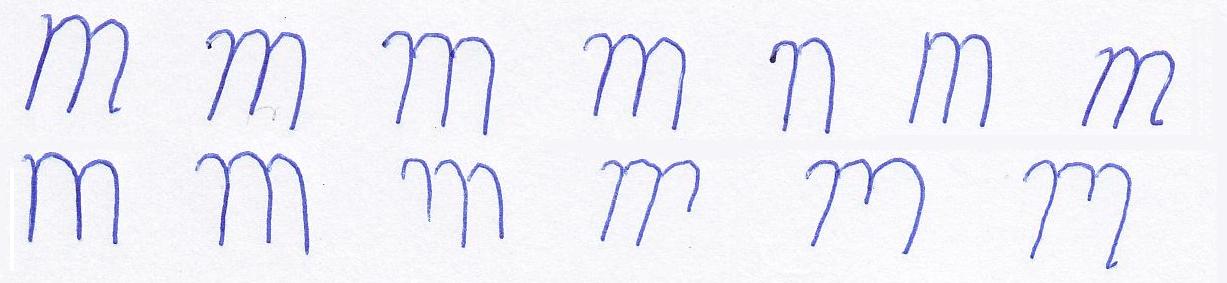 m m m m n m m
m m m m m m